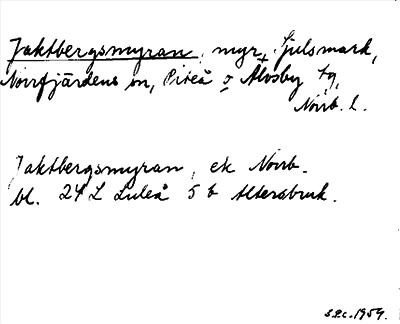 Jaktbergsmyran, myr, Sjulsmark,
Norrfjärdens sn, Piteå o Älvsby tg,
Norrb. l.
Jaktbergsmyran, ek Norrb.
bl. 24 L Luleå 5 b Altersbruk.
S.P.C. 1959.